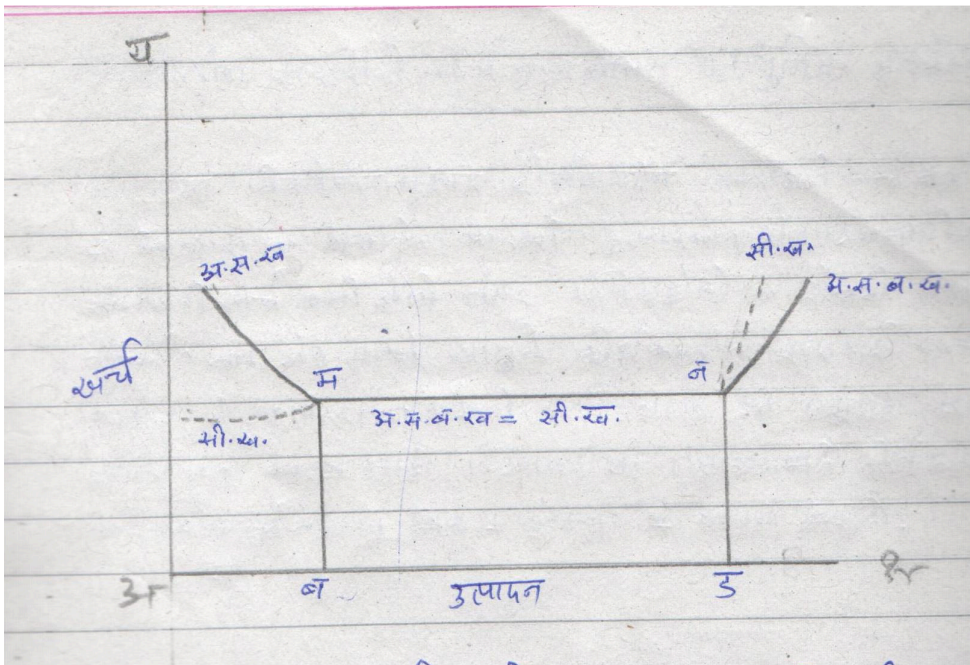 य
अ.स.ख
सी.ख.
अ.स.ब.ख.
खर्च
म
न
अ.स.ब.ख = सी.ख.
सी.ख.
अ
ब
उत्पादन
ड
क्ष